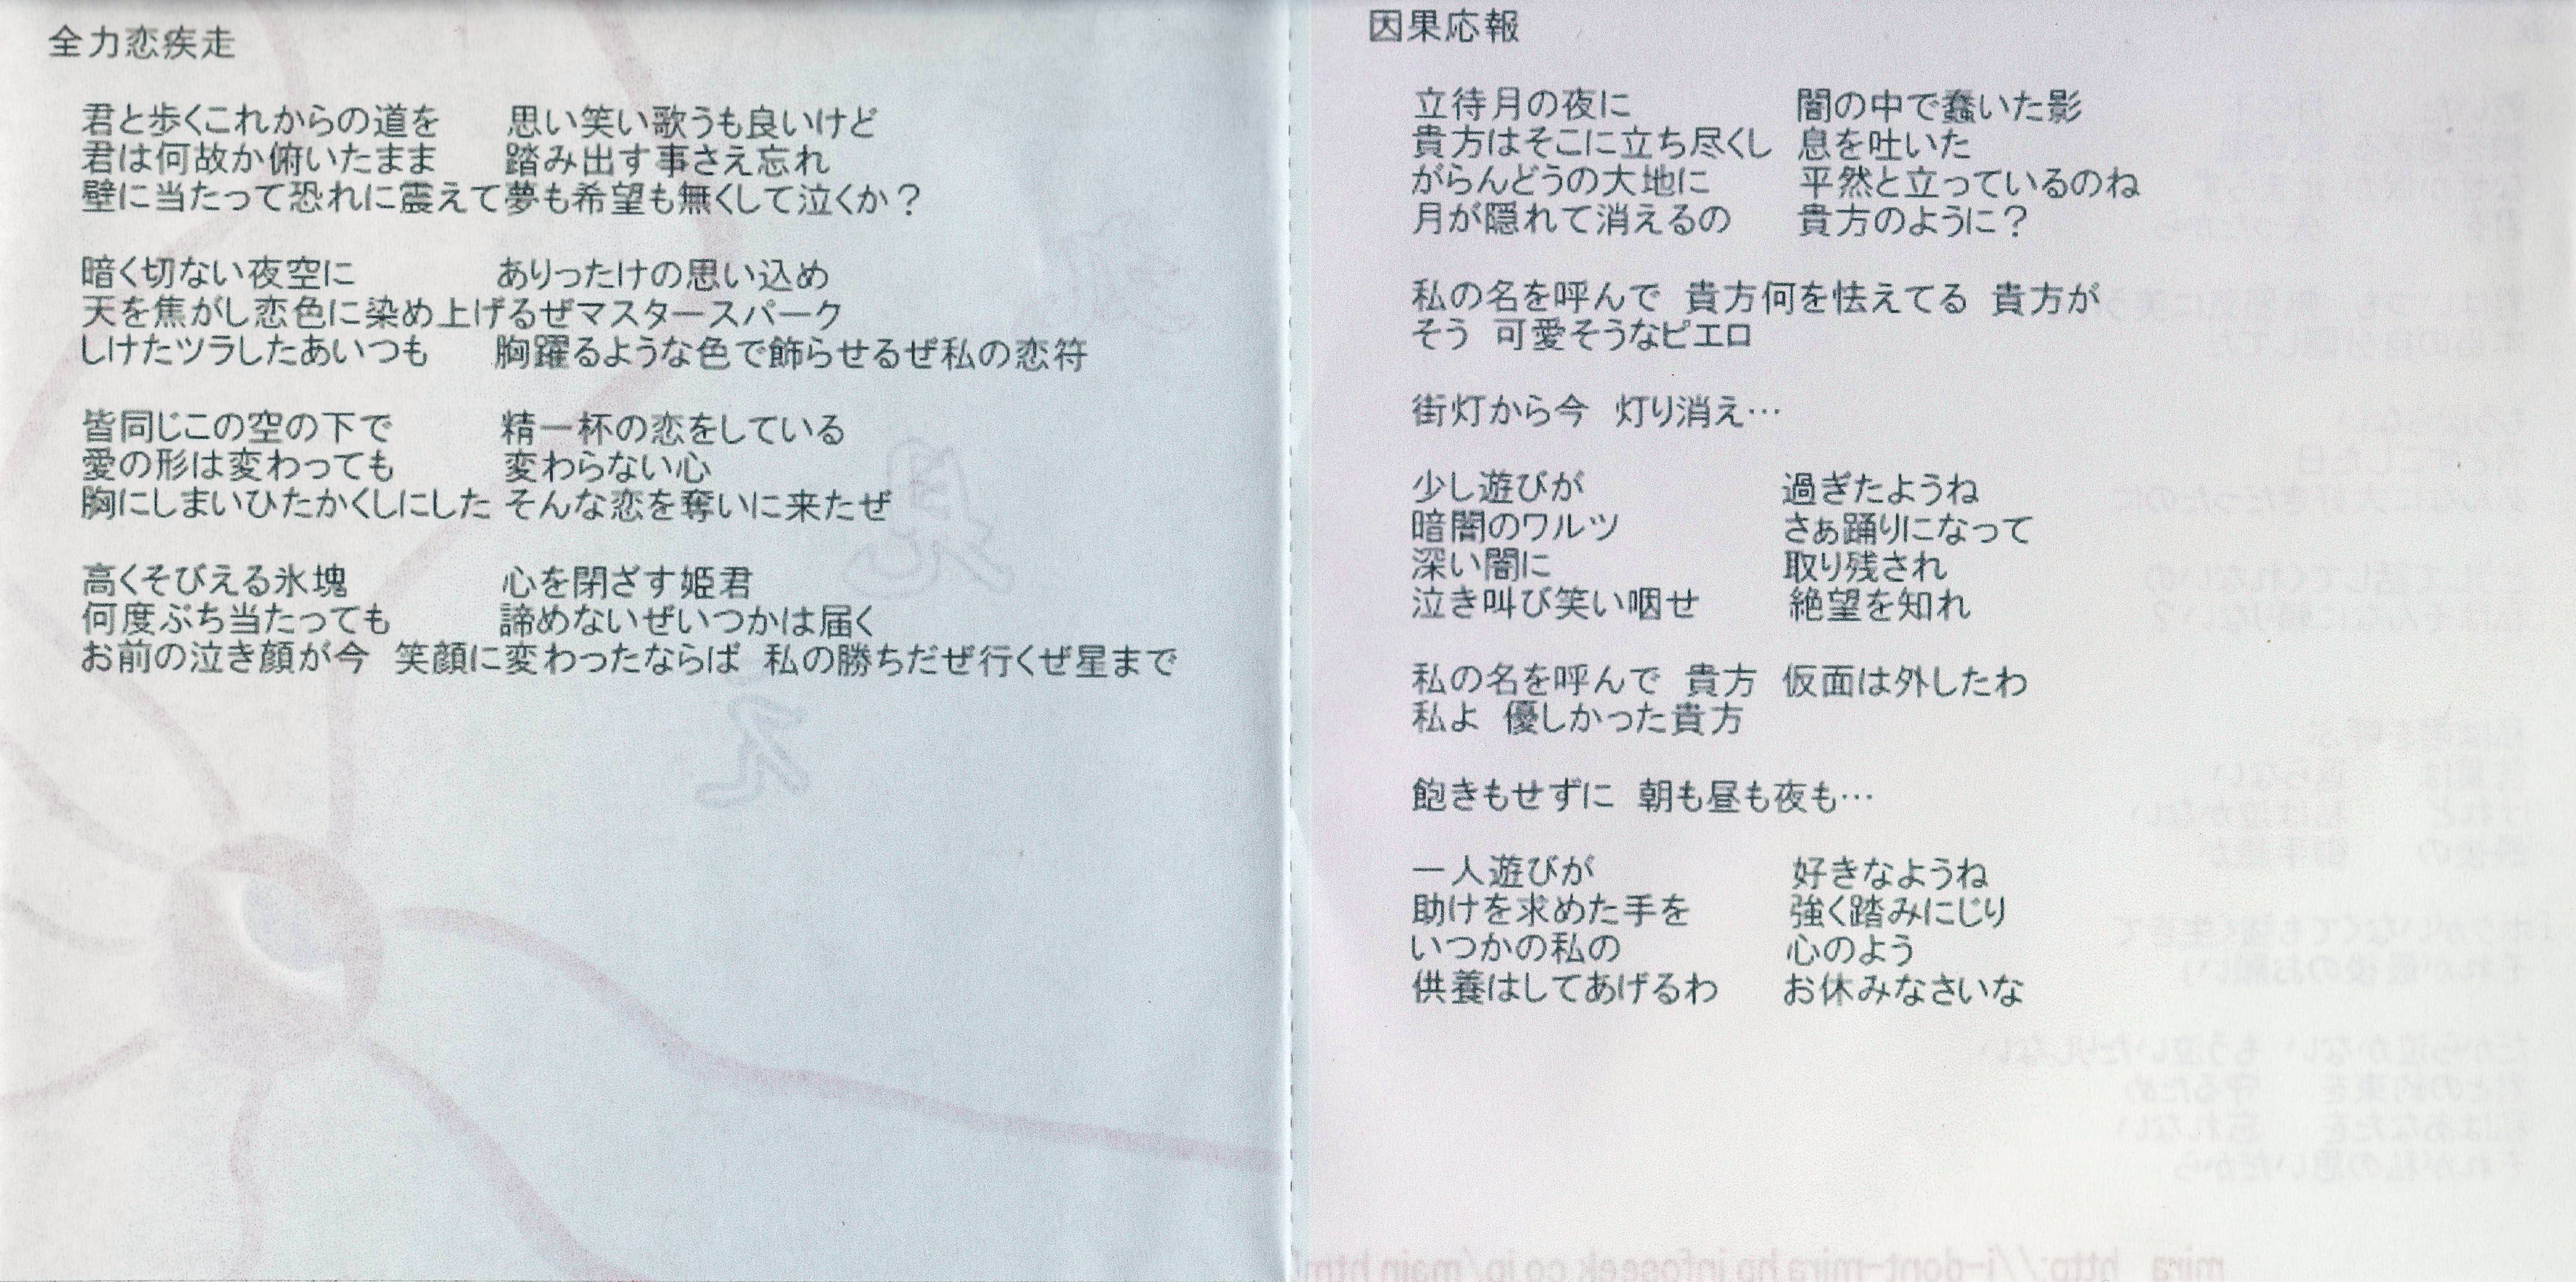 全力恋疾走
君と歩くこれからの道を　思い笑い歌うも良いけど
君は何故か俯いたまま　踏み出す事さえ忘れ
壁に当たって恐れに震えて夢も希望も無くして泣くか？
暗く切ない夜空に　ありったけの思い込め
天を焦がし恋色に染め上げるぜマスタースパーク
しけたツラしたあいつも　胸躍るような色で飾らせるぜ私の恋符
皆同じこの空の下で　精一杯の恋をしている
愛の形は変わっても　変わらない心
胸にしまいひたかくしにした そんな恋を奪いに来たぜ
高くそびえる氷塊　心を閉ざす姫君
何度ぶち当たっても　諦めないぜいつかは届く
お前の泣き顔が今　笑顔に変わったならば　私の勝ちだぜ行くぜ星まで
因果応報
立待月の夜に　闇の中で蠢いた影
貴方はそこに立ち尽くし　息を吐いた
がらんどうの大地に　平然と立っているのね
月が隠れて消えるの　貴方のように？
私の名を呼んで　貴方何を怯えてる　貴方が
そう　可愛そうなピエロ
街灯から今　灯り消え…
少し遊びが　過ぎたようね
暗闇のワルツ　さぁ踊りになって
深い闇に　取り残され
泣き叫び笑い咽せ　絶望を知れ
私の名を呼んで　貴方　仮面は外したわ
私よ　優しかった貴方
飽きもせずに　朝も昼も夜も…
一人遊びが　好きなようね
助けを求めた手を　強く踏みにじり
いつかの私の　心のよう
供養はしてあげるわ　お休みなさいな